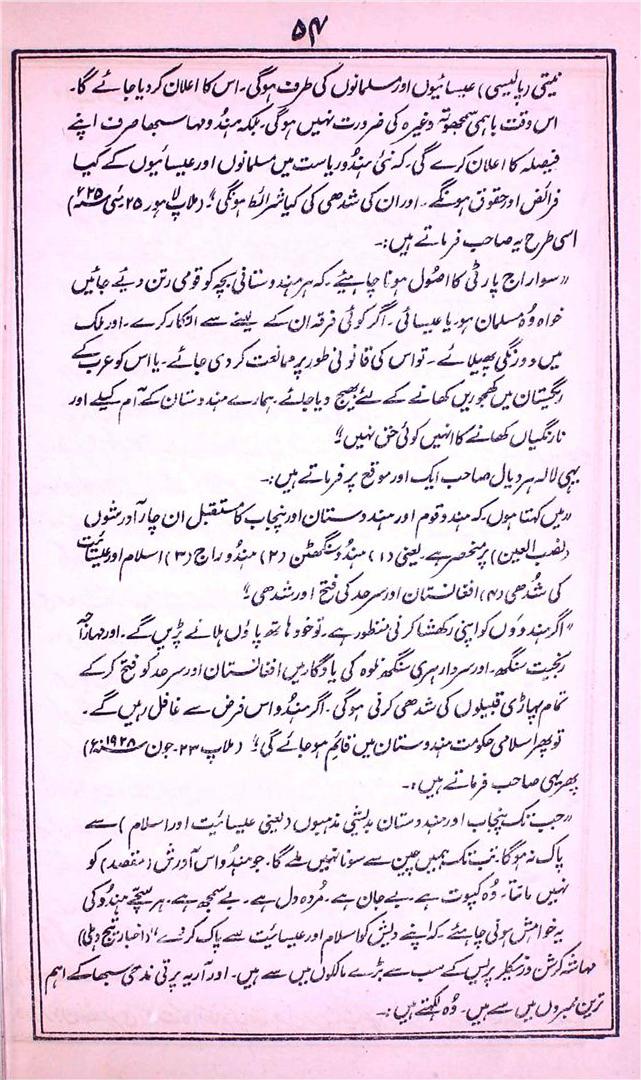 ۵۴
نیتی (پالیسی) عیسائیوں اور مسلمانوں کی طرف ہوگی۔ اس کا اعلان کر دیا جائے گا۔
اس وقت باہمی سمجھوتہ وغیرہ کی ضرورت نہیں ہوگی۔ بلکہ ہندو مہاسبھا صرف اپنے
فیصلہ کا اعلان کرے گی۔ کہ نئی ہندو ریاست میں مسلمانوں اور عیسائیوں کے کیا
فرائض اور حقوق ہونگے۔ اور ان کی شدھی کی کیا شرائط ہونگی؟" (ملاپ لاہور ۲۵ مئی ۲۵ء)
اسی طرح یہ صاحب فرماتے ہیں:۔
"سواراج پارٹی کا اصول ہونا چاہیئے۔ کہ ہر ہندوستانی بچہ کو قومی رتن دیئے جائیں
خواہ وہ مسلمان ہو۔ یا عیسائی۔ اگر کوئی فرقہ ان کے لینے سے انکار کرے۔ اور ملک
میں دورنگی پھیلائے۔ تو اس کی قانونی طور پر ممانعت کر دی جائے۔ یا اس کو عرب کے
ریگستان میں کھجوریں کھانے کے لئے بھیج دیا جائے۔ ہمارے ہندوستان کے آم کیلے اور
نارنگیاں کھانے کا انہیں کوئی حق نہیں"
یہی لالہ ہردیال صاحب ایک اور موقع پر فرماتے ہیں:۔
"میں کہتا ہوں۔ کہ ہندو قوم اور ہندوستان اور پنجاب کا مستقبل ان چار آدرشوں
(نصب العین) پر منحصر ہے۔ یعنی (۱) ہندو سنگھٹن (۲) ہندو راج (۳) اسلام اور عیسائیت
کی شدھی (۴) افغانستان اور سرحد کی فتح اور شدھی۔"
"اگر ہندوؤں کو اپنی رکھشا کرنی منظور ہے۔ تو خود ہاتھ پاؤں ہلانے پڑیں گے۔ اور مہاراجہ
رنجیت سنگھ۔ اور سردار ہری سنگھ نلوہ کی یادگار میں افغانستان اور سرحد کو فتح کر کے
تمام پہاڑی قبیلوں کی شدھی کرنی ہوگی۔ اگر ہندو اس فرض سے غافل رہیں گے۔
تو پھر اسلامی حکومت ہندوستان میں قائم ہو جائے گی" (ملاپ ۲۳۔ جون ۱۹۲۸ء)
پھر یہی صاحب فرماتے ہیں:۔
"جب تک پنجاب اور ہندوستان بدیشی مذہبوں (یعنی عیسائیت اور اسلام) سے
پاک نہ ہوگا۔ تب تک ہمیں چین سے سونا نہیں ملے گا۔ جو ہندو اس آدرش (مقصد) کو
نہیں مانتا۔ وہ کپوت ہے۔ بے جان ہے۔ مردہ دل ہے۔ بے سمجھ ہے۔ ہر سچے ہندو کی
یہ خواہش ہونی چاہیئے۔ کہ اپنے دیش کو اسلام اور عیسائیت سے پاک کر دے" (اخبار تیج دہلی)
مہاشہ کرشن ورنیکلر پریس کے سب سے بڑے مالکوں میں سے ہیں۔ اور آریہ پرتی ندھی سبھا کے اہم
ترین ممبروں میں سے ہیں۔ وہ لکھتے ہیں:۔